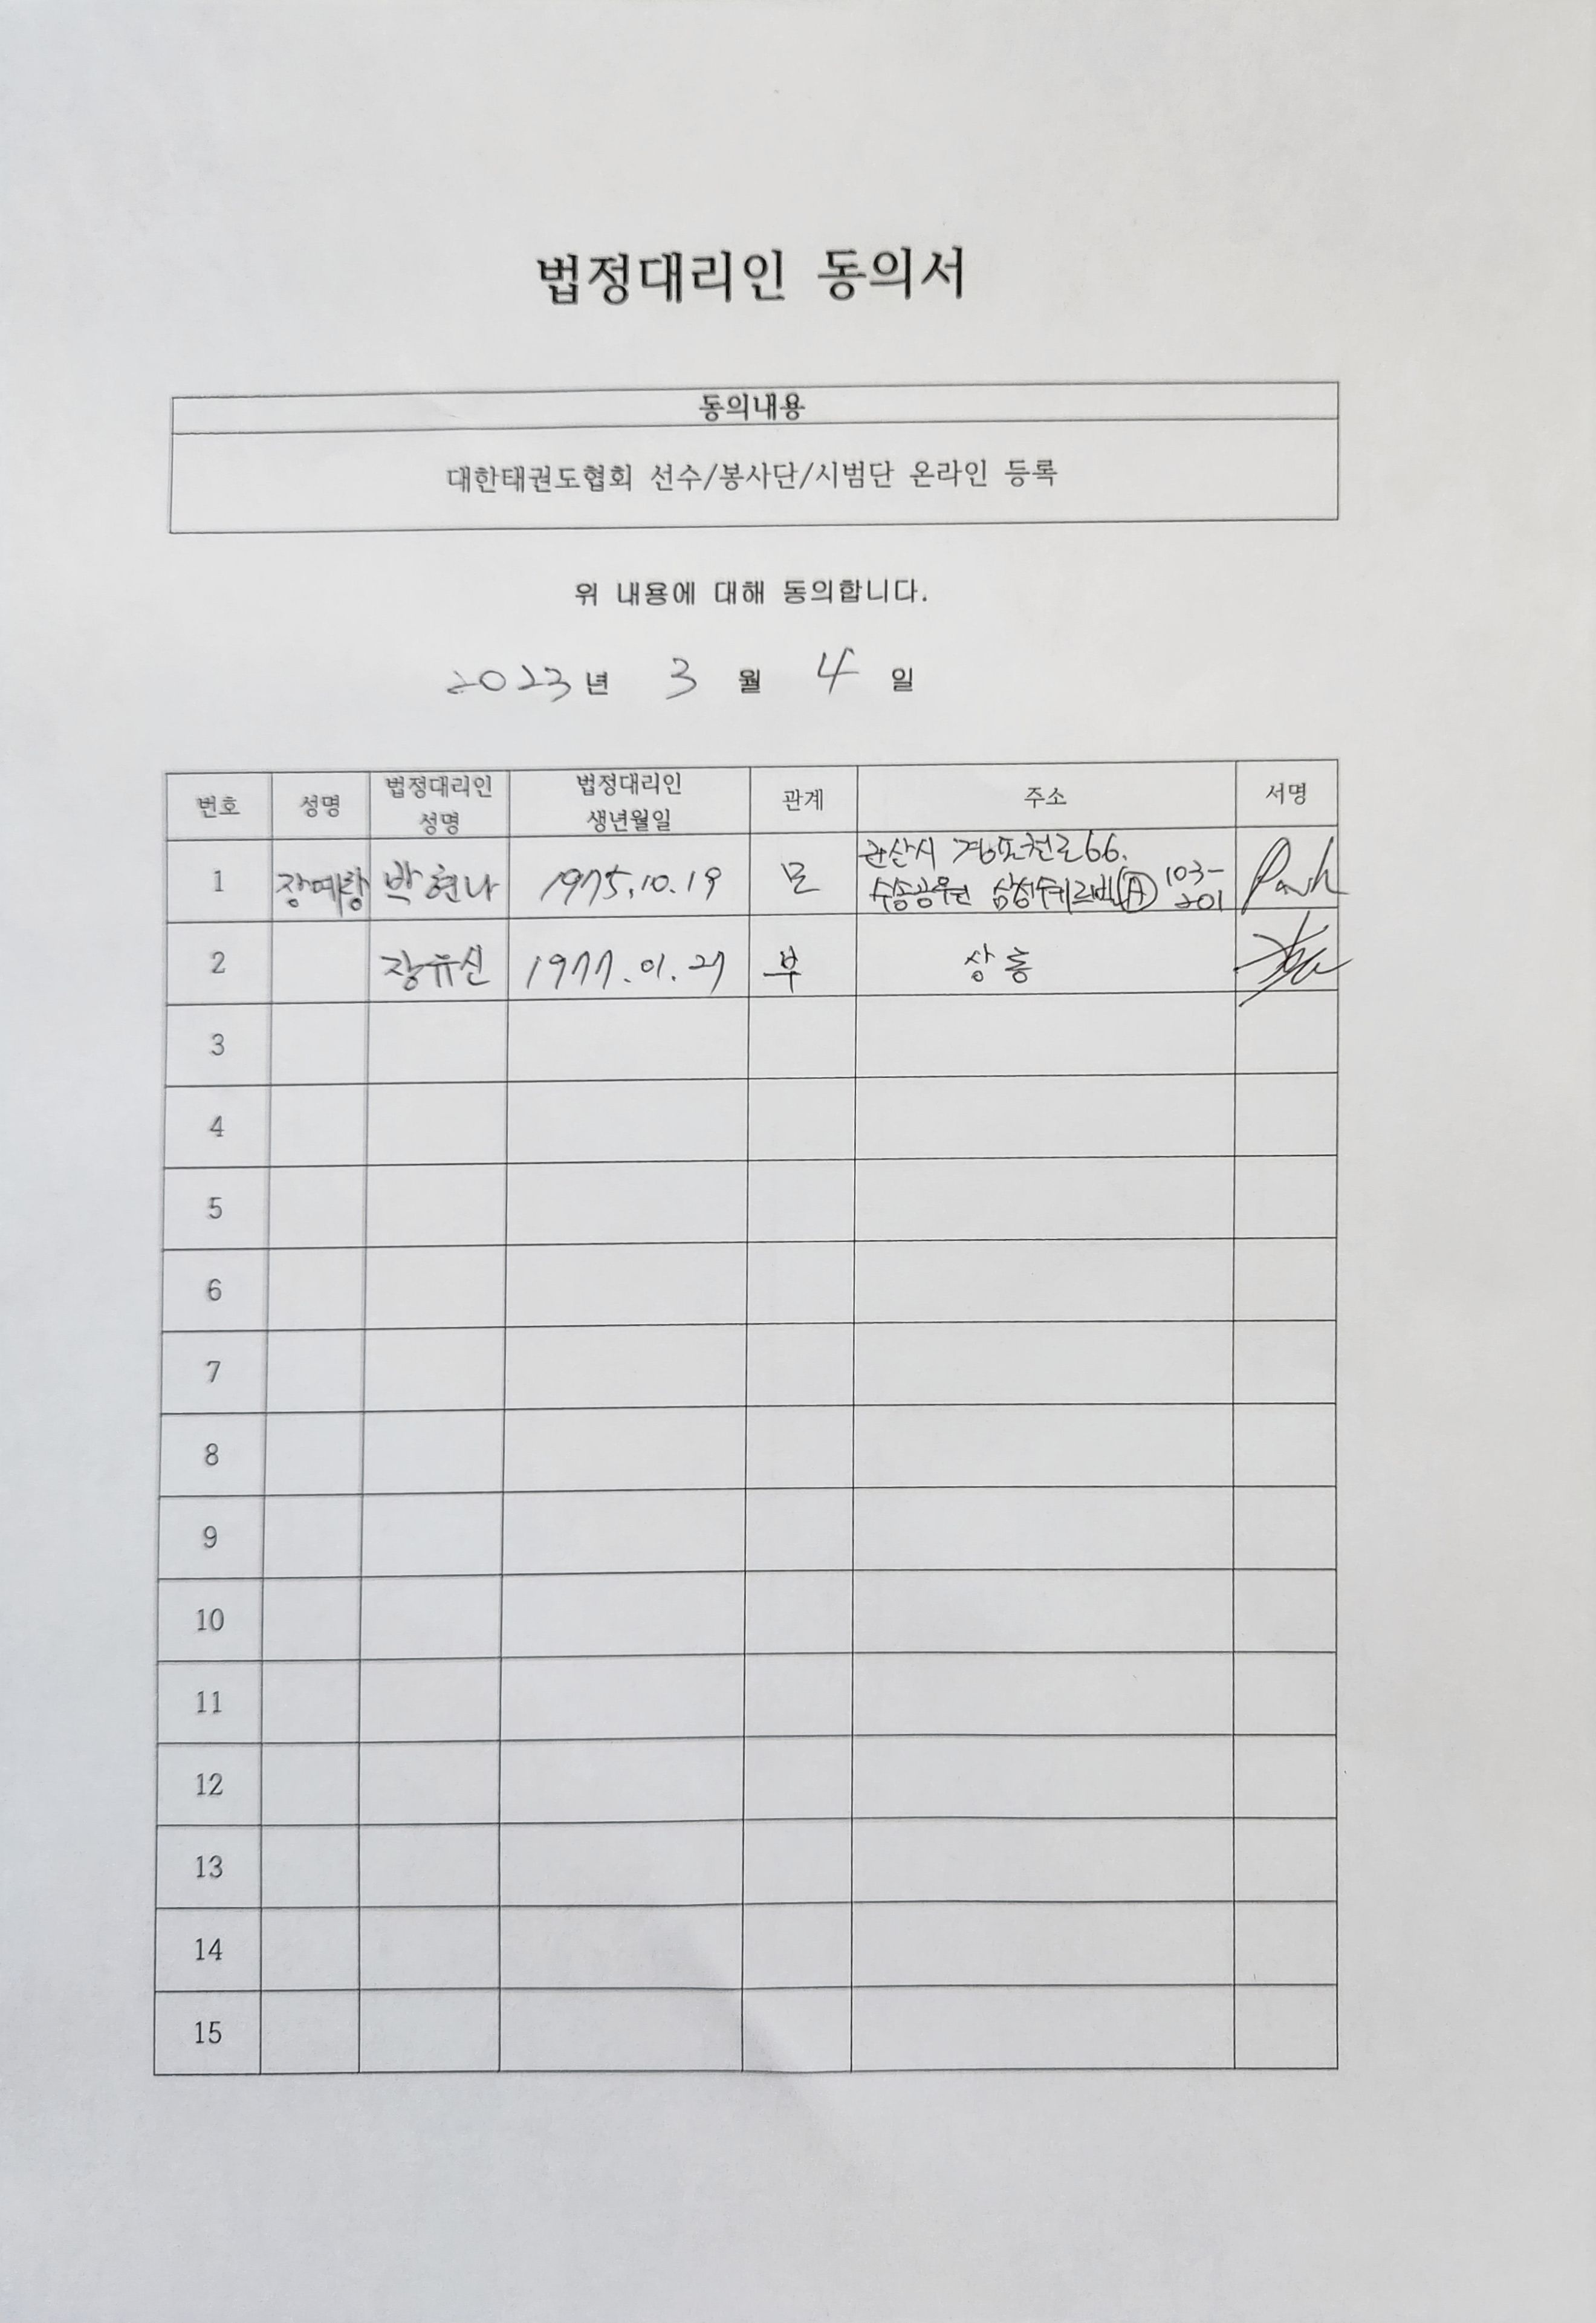 법정대리인 동의서
동의내용
대한태권도협회 선수/봉사단/시범단 온라인 등록
위 내용에 대해 동의합니다.
2023년 3 월 4 일
번호 성명 법정대리인 성명 법정대리인 생년월일 관계 주소 서명
1 장예랑 박현나 1975.10.19 모 군산시 경포천로 66.
수송공원 삼성쉬르빌(A) 103-201
2 장유신 1977.01.27 부 상동
3
4
5
6
7
8
9
10
11
12
13
14
15